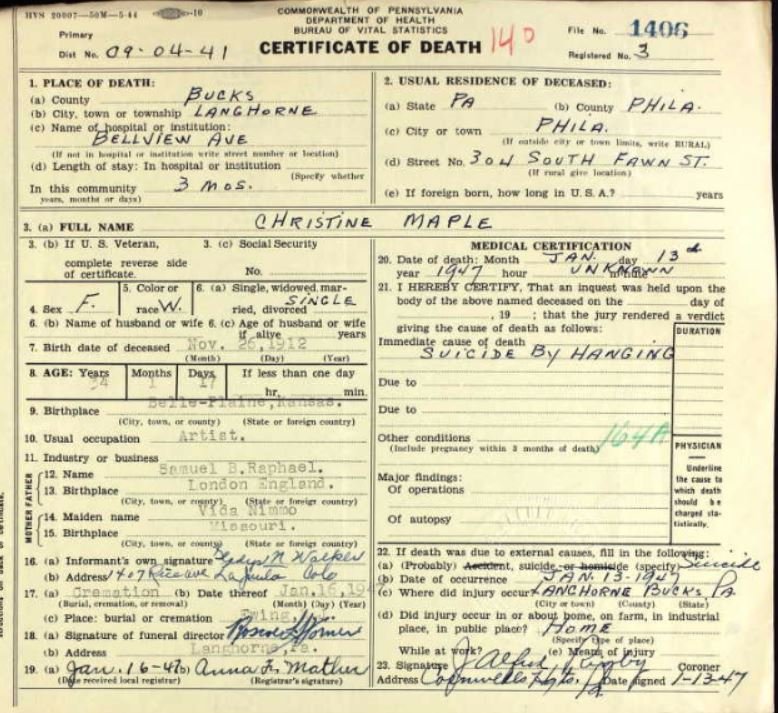 HVS 20007-50M-5-44 -10
COMMONWEALTH OF PENNSYLVANIA
DEPARTMENT OF HEALTH
BUREAU OF VITAL STATISTICS
CERTIFICATE OF DEATH 140
Primary
Dist No. 09-04-41
File No. 1406
Registered No. 3
1. PLACE OF DEATH:
(a) County BUCKS
(b) City, town or township LANGHORNE
(c) Name of hospital or institution:
BELLVIEW AVE
(If not in hospital or institution write street number or location)
(d) Length of stay: In hospital or institution
(Specify whether
In this community 3 MOS.
years, months or days)
2. USUAL RESIDENCE OF DECEASED:
(a) State PA (b) County PHILA.
(c) City or town PHILA.
(If outside city or town limits, write RURAL)
(d) Street No. 304 SOUTH FAWN ST.
(If rural give location)
(e) If foreign born, how long in U.S.A.? years
3. (a) FULL NAME CHRISTINE MAPLE
3. (b) If U. S. Veteran,
complete reverse side
of certificate.
3. (c) Social Security
No.
4. Sex F.
5. Color or
race W.
6. (a) Single, widowed, mar-
ried, divorced SINGLE
6. (b) Name of husband or wife 6. (c) Age of husband or wife
if alive years
7. Birth date of deceased Nov. 26,1912
(Month) (Day) (Year)
8. AGE: Years Months Days If less than one day
34 1 17 hr. min.
9. Birthplace Belle-Plaine,Kansas.
(City, town, or county) (State or foreign country)
10. Usual occupation Artist.
11. Industry or business
MOTHER FATHER
12. Name Samuel B.Raphael.
13. Birthplace London England.
(City, town, or county) (State or foreign country)
14. Maiden name Vida Nimmo
15. Birthplace Missouri.
(City, town, or county) (State or foreign country)
16. (a) Informant's own signature Gladys N Walker
(b) Address 1407 Rice ave La Junta Colo
17. (a) Cremation (b) Date thereof Jan.16,1947
(Burial, cremation, or removal) (Month) (Day) (Year)
(c) Place: burial or cremation Ewing,
18. (a) Signature of funeral director
(b) Address Langhorne,Pa.
19. (a) Jan. 16-47 (b) Anna F. Mather
(Date received local registrar) (Registrar's signature)
MEDICAL CERTIFICATION
20. Date of death: Month JAN. day 13
year 1947 hour UNKNOWN minute
21. I HEREBY CERTIFY, That an inquest was held upon the
body of the above named deceased on the day of
, 19 ; that the jury rendered a verdict
giving the cause of death as follows:
DURATION
Immediate cause of death
SUICIDE BY HANGING
Due to
Due to
Other conditions 164A
(Include pregnancy within 3 months of death)
Major findings:
Of operations
Of autopsy
PHYSICIAN
Underline
the cause to
which death
should be
charged sta-
tistically.
22. If death was due to external causes, fill in the following:
(a) (Probably) Accident, suicide, or homicide (specify) Suicide
(b) Date of occurrence JAN. 13-1947
(c) Where did injury occur? LANGHORNE BUCKS PA
(City or town) (County) (State)
(d) Did injury occur in or about home, on farm, in industrial
place, in public place? HOME
(Specify type of place)
While at work? (e) Means of injury
23. Signature J Alfred Coroner
Address Cornwells Hgts. Pa Date signed 1-13-47